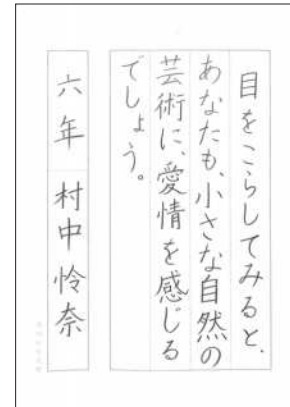 目をこらしてみると、
あなたも、小さな自然の
芸術に、愛情を感じる
でしょう。
六年 村中怜奈